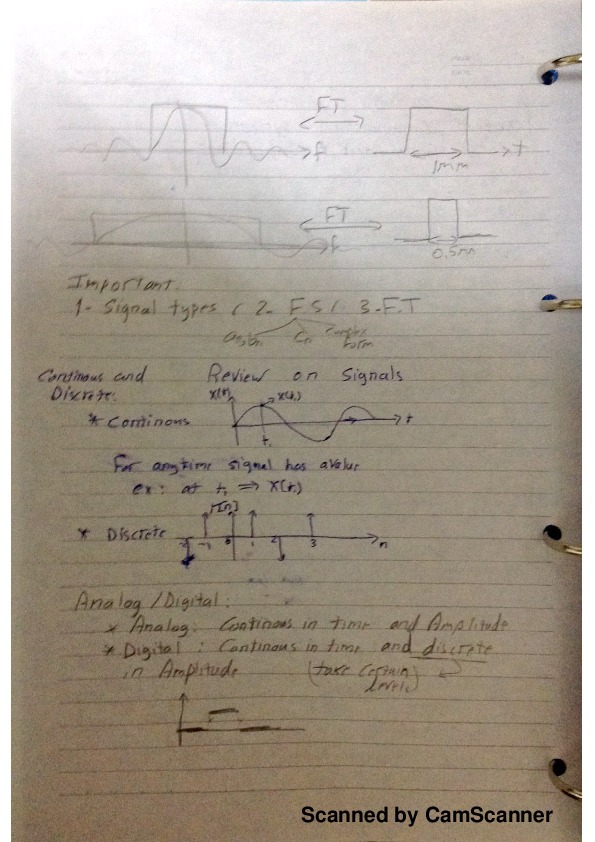 FT
f
t
1mm
FT
f
0.5m
Important:
1- Signal types / 2- F.S / 3- F.T
an, bn Cn Complex Form
Continous and Discrete:
Review on Signals
* Continous
X(t)
X(t1)
t1
t
For anytime signal has a value
ex: at t1 ⇒ X(t1)
* Discrete
[n]
-1 0 1 2 3 n
Analog / Digital:
* Analog: Continous in time and Amplitude
* Digital: Continous in time and discrete
in Amplitude (take certain
levels)
Scanned by CamScanner